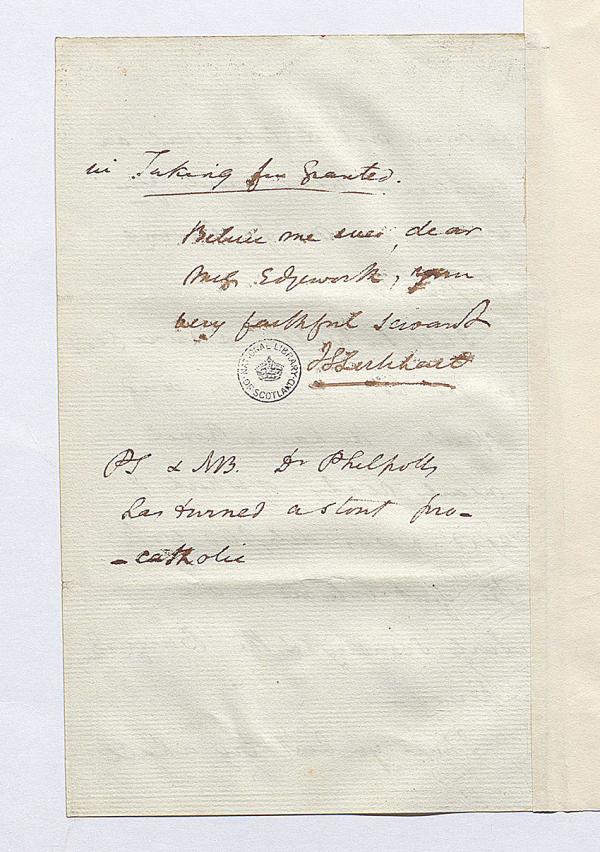 in Taking for Granted.
Believe me ever, dear
Miss Edgeworth, your
very faithful servant
J G Lockhart
NATIONAL LIBRARY
OF SCOTLAND
PS & NB. Dr Philpotts
has turned a stout pro-
-catholic